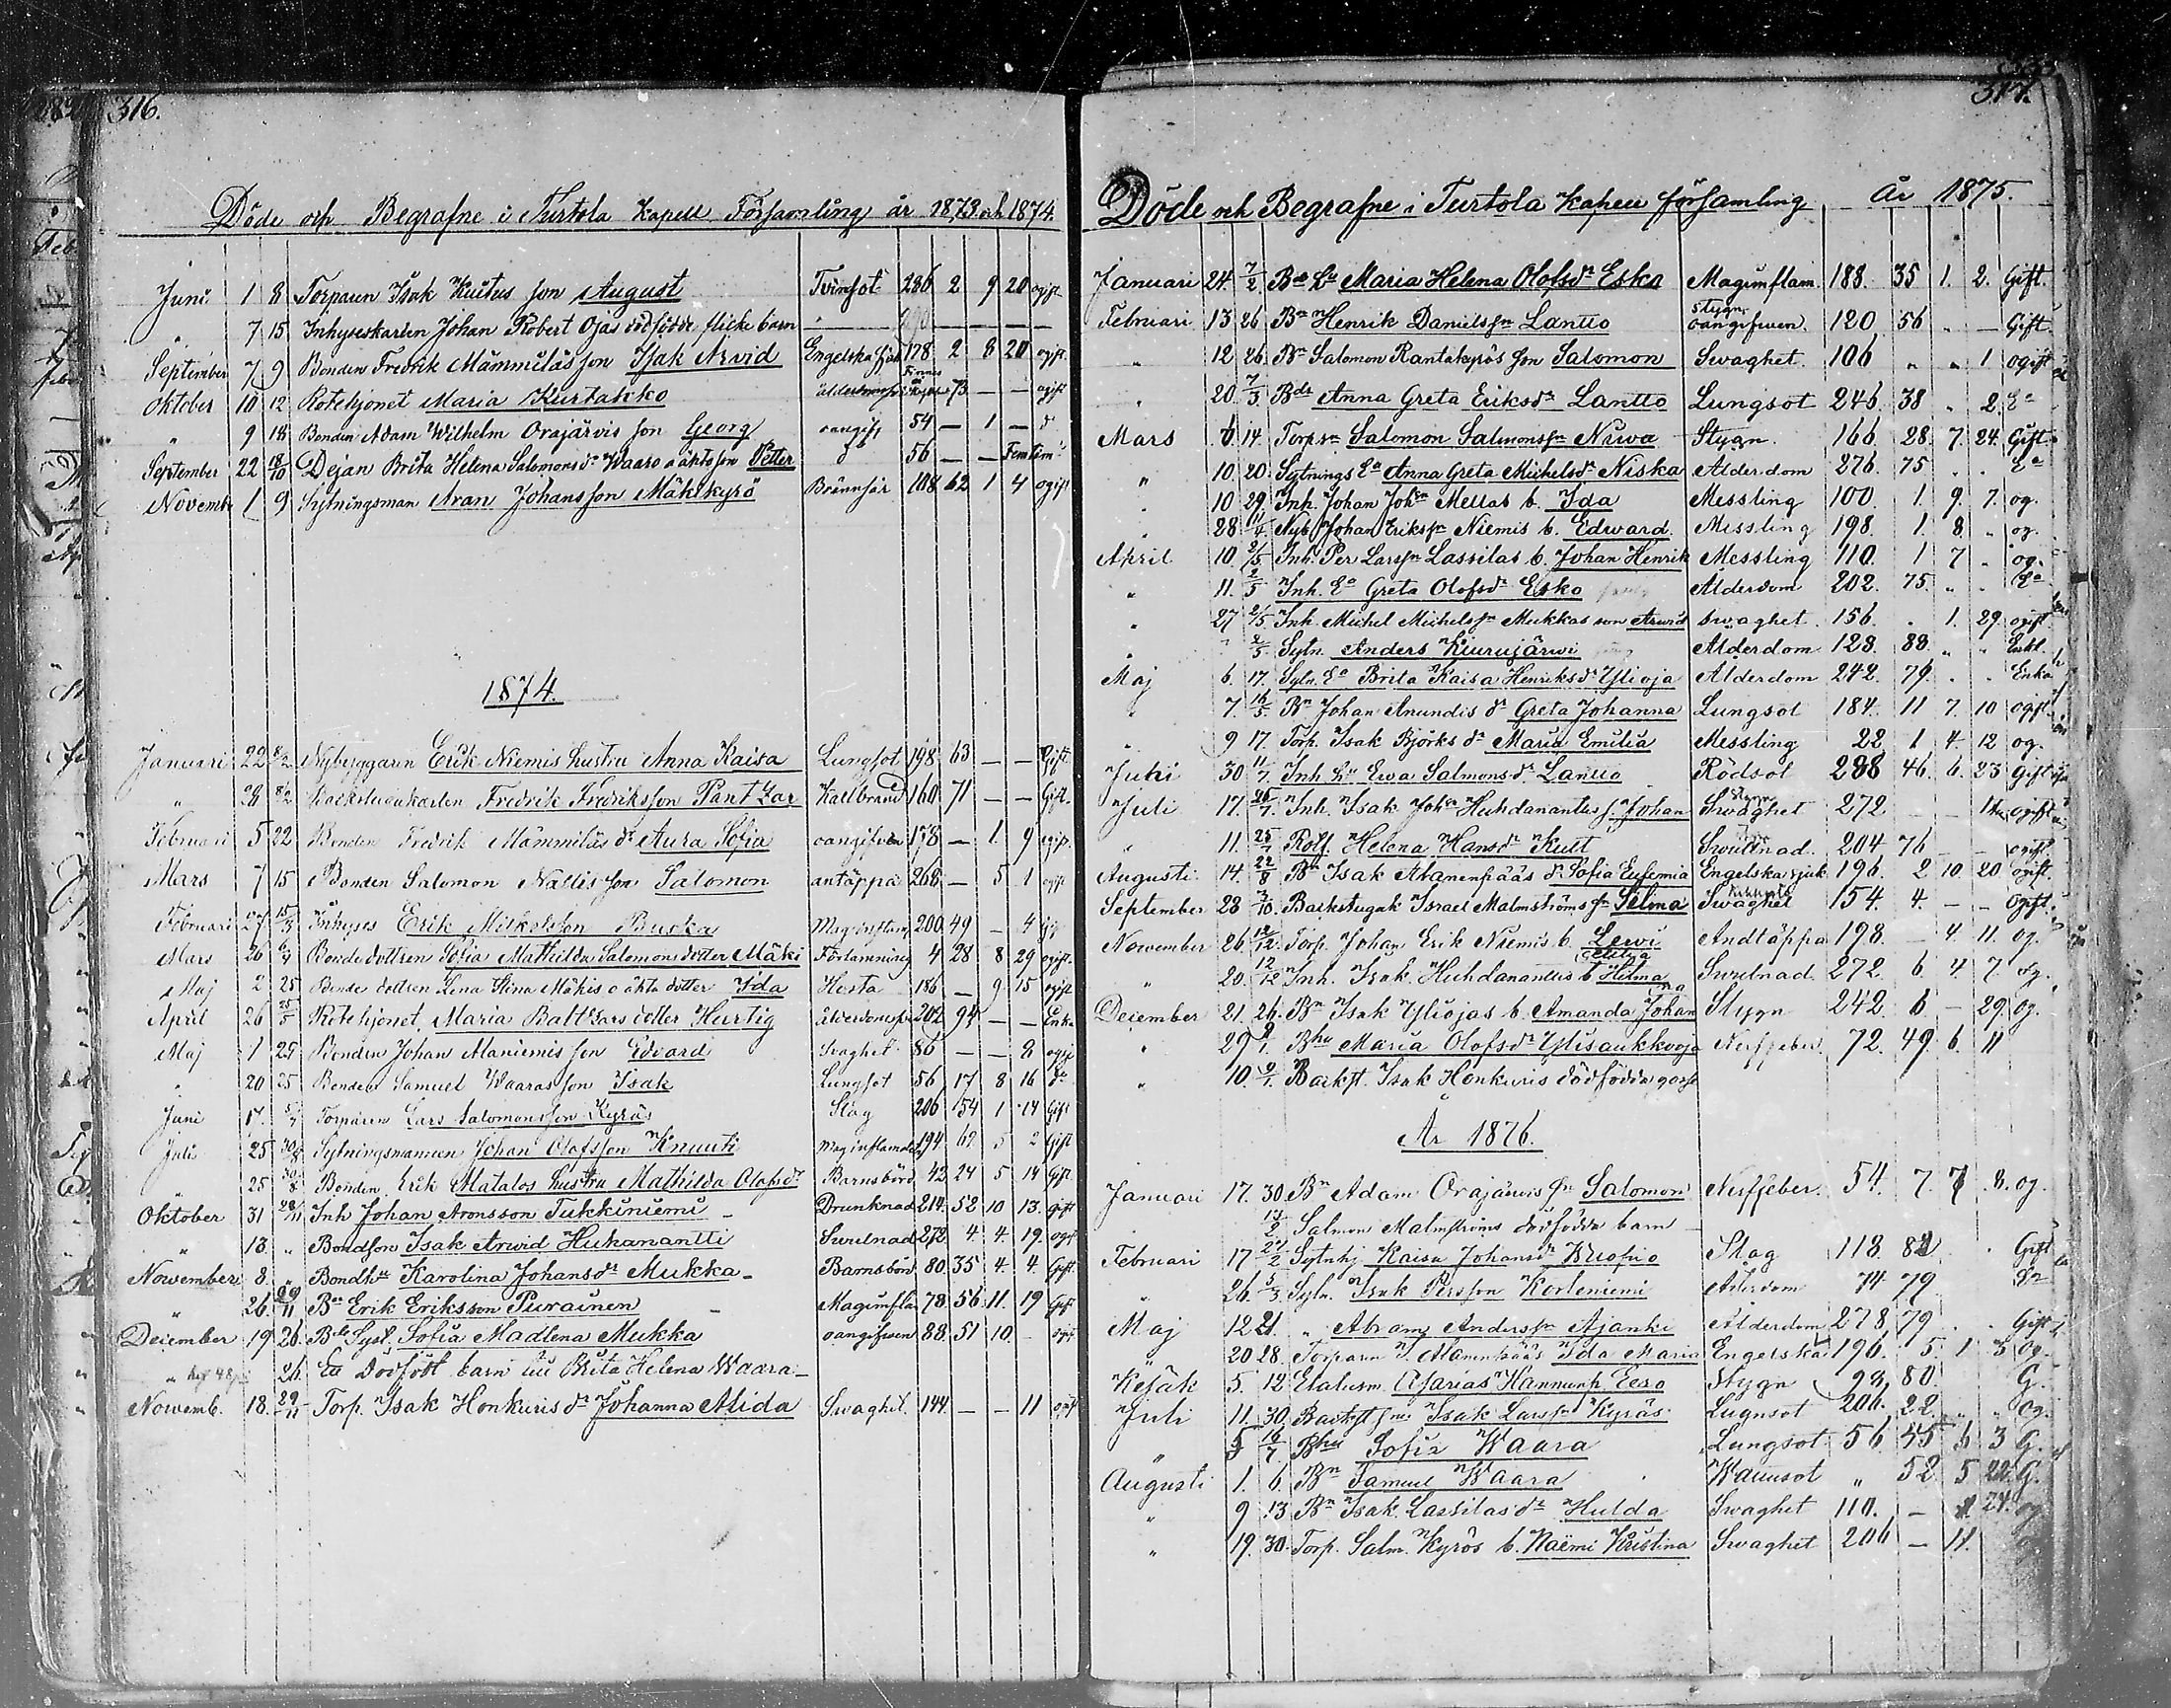 316.
Döde och Begrafne i Turtola Kapell Församling år 1873 och 1874.
Juni 1 8 Torparen Isak Kuitus son August Tvinsot 286 2 9 20 ogift
" 7 15 Inhyseskarlen Johan Robert Ojas dödfödde flicke barn — — — —
September 7 9 Bonden Fredrik Mämmiläs son Isak Arvid Engelska sjuk 178 2 8 20 ogift
Oktober 10 12 Rotehjonet Maria Kurtakko 73 — — ogift
" 9 18 Bonden Adam Wilhelm Orajärvis son Georg oangift 54 — 1 — d
September 22 18/10 Dejan Brita Helena Salomonsdr Waara oäkta son Petter d 56 — — Fem tim
Novembr 1 9 Sytningsman Aran Johansson Mäkikyrö Brännsår 108 62 1 4 ogift
1874.
Januari 22 8/2 Nybyggaren Erik Niemis hustru Anna Kaisa Lungsot 198 63 — — Gift
" 28 8/2 Backstugukarlen Fredrik Fredriksson Pantzar Kallbrand 160 71 — — Gift.
Februari 5 22 Bonden Fredrik Mämmiläs dr Aura Sofia oangifven 178 — 1. 9 ogift
Mars 7 15 Bonden Salomon Nallis son Salomon antäppa 268 — 5 1 ogift
Februari 27 15/3 Inhyses Erik Mickelsson Ruska Maginflam 200 49 — 4 gift
Mars 26 6/4 Bondedottren Sofia Mathilda Salomons dotter Mäki Förlamning 4 28 8 29 ogift
Maj 2 25 Bonde dottren Lena Stina Mäkis oäkta dotter Ida Hosta 186 — 9 15 ogift
April 26 25/5 Rotehjonet Maria Baltzars dotter Hurtig 202 94 — — Enka
Maj 1 25 Bonden Johan Alaniemis son Edvard Svaghet 86 — — 2 ogift
" 20 25 Bonden Samuel Waaras son Isak Lungsot 56 17 8 16 do
Juni 17. 5/7 Torparen Lars Salomonsson Kyrös Slag 206 54 1 14 Gift
Juli 25 30/8 Sytningsmannen Johan Olofsson Knuuti 194 69 5 2 Gift
" 25 30/8 Bonden Erik Matalos hustru Mathilda Olofsdr Barnsbörd 42 24 5 14 Gift
Oktober 31 28/11 Inh Johan Aronsson Tukkiniemi Drunknad 214. 52 10 13. Gift
" 13. " Bondson Isak Arwid Huhanantti Swulnad 272 4 4. 19. ogift
Nowember 8. " Bondhu Karolina Johansdr Mukka Barnsbörd 80. 35 4. 4. Gift.
" 26. 29/11 Bn Erik Eriksson Purainen Maginfla 78. 56 11. 19 Gift
December 19 26. Bde Syst. Sofia Madlena Mukka oangifwen 88. 51 10. - ogift
" 26. Ett Dödfödt barn till Brita Helena Waara
Nowemb. 18. 29/11 Torp. Isak Honkuris dr Johanna Alida Swaghet. 144. — — 11 ogift
317.
Döde och Begrafne i Turtola Kapell församling År 1875.
Januari 24. 7/2 Bde hu Maria Helena Olofsdr Esko Maginflam. 188. 35 1. 2. Gift.
Februari 13 26 Bn Henrik Danielsson Lantto Stygn oangifwen. 120 56 " — Gift.
" 12 26. Bn Salomon Rantakyrös son Salomon Swaghet. 106 " " 1 ogift
" 20. 7/3 Bdr Anna Greta Eriksdr Lantto Lungsot 246. 38 " 2. Ea
Mars 6. 14. Torpsn Salomon Salmonsson Niwa Stygn. 166. 28. 7. 24. Gift.
" 10. 20. Sytnings Ea Anna Greta Michelsdr Niska Alderdom 276. 75 . . Ea
" 10 29. Inh. Johan Johsn Mellas b. Ida Messling 100. 1 9. 7. og.
" 28 11/4 Nyb. Johan Erikssn Niemis b. Edward. Messling 198. 1. 8. " og.
April 10. 2/5 Inh. Per Larssn Lassilas b. Johan Henrik Messling 110. 1 7 . og.
" 11. 2/5 Inh. Ea Greta Olofsdr Esko Alderdom 202. 75. . . Ea
" 27 2/5 Inh. Michel Michelsn Mukkas son Arwid Swaghet. 156. . 1. 29. ogift
" 2/5 Sytn. Anders Kiurujärwi Alderdom 128. 88. " " Enkl.
Maj 6. 17. Sytn. Ea Brita Kaisa Henriksdr Ylioja Alderdom 242. 79. . . Enka
" 7. 16/5 Bn Johan Anundis dr Greta Johanna Lungsot 184. 11 7. 10 ogift
" 9 17. Torp. Isak Björks dr Maria Emilia Messling 22 1 4. 12 og.
Juni 30 11/7 Inh. hu Ewa Salmonsdr Lantto Rödsot 288 46. 6. 23 Gift
Juli 17. 25/7 Inh. Isak Johsn Huhdanantus s. Johan Stygn Swaghet 272 — — ogift
" 11. 25/7 Rotf. Helena Hansdr Kult Swulnad. 204 76 — — ogift.
Augusti 14. 22/8 Bn Isak Alanenpääs dr Sofia Eufemia Engelska sjuk. 196. 2 10. 20 ogift.
September 28 3/10 Backstuguk. Israel Malmströms Selma Swaghet 154. 4. — — Ogift.
Nowember 26. 12/12 Torp. Johan Erik Niemis b. Lewi Andtäppa 198. — 4. 11. og.
" 20. 12/12 Inh. Isak Huhdananttis b. Hilma Swulnad. 272. 6. 4. 7. og.
December 21. 26. Bn Isak Yliojas b. Amanda Johanna Stygn 242. 6 — 29. og.
" 29 9/1 Bhu Maria Olofsdr Ylisaukkooja Nerffeber. 72. 49. 6. 11
" 10. 9/1 Backst. Isak Honkuris dödfödda gosse
År 1876.
Januari 17. 30. Bn Adam Orajärwis sn Salomon Nerffeber. 54. 7. 7 .8. og.
" 13/2 Salmon Malmströms dödfödda barn
Februari 17 27/2 Sytnhj Kaisa Johansdr Wuopio Slag 118. 82 . Gift
" 26. 5/3 Sytn. Isak Persson Korteniemi Alderdom 74 79 Do
Maj 12 21. " Abram Anderssn Ajanki Alderdom 278 79 . . Gift
" 20 28. Torparen I. Alanenpääs Ida Maria Engelska 196. 5. 1 3 Og.
5. 12 Asarias Hannunp. Eero Stygn 93 80. G.
Juli 11. 30. Backst sn Isak Larssn Kyrös. Lugnsot 206. 22 " . Og.
" 5 16/7 Bhu Sofia Waara Lungsot 56 45 6 3 G.
Augusti 1. 6. Bn Samuel Waara Wattusot " 52. 5 22. G.
" 9 13 Bn Isak. Lassilas dr Hulda Swaghet 110. — 24. og
" 19. 30. Torp. Salm. Kyrös b. Naëmi Kristina Swaghet 206 — 11.